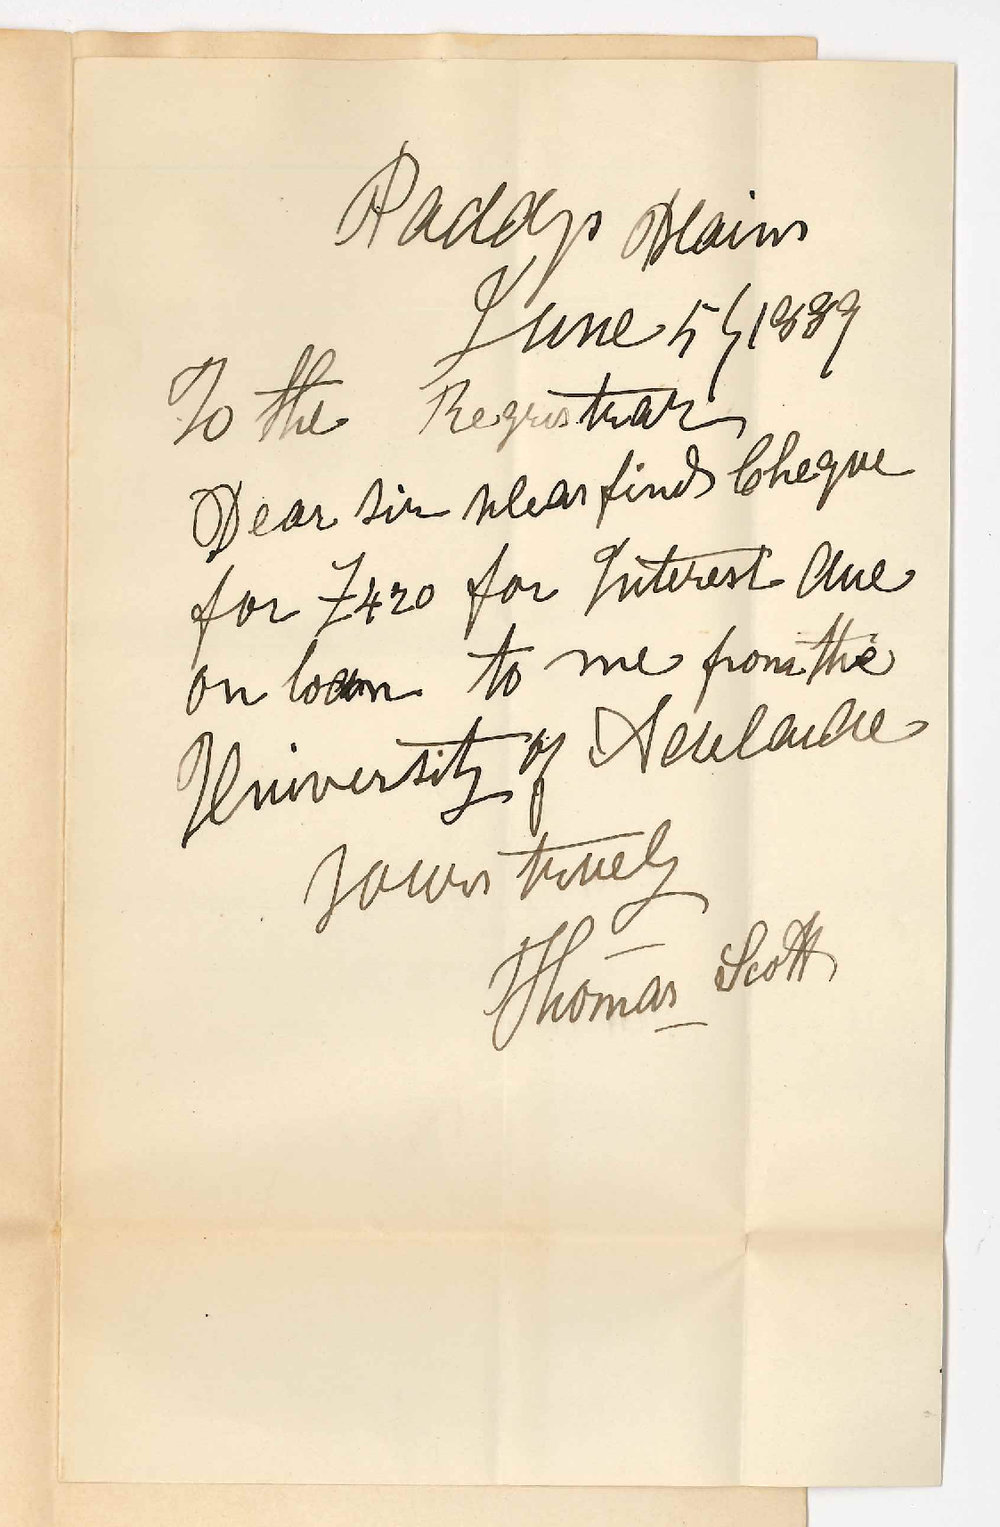 Paddys Plains
June 5/1889
To the Registrar
Dear sir pleas find Cheque
for £420 for Interest due
on loan to me from the
University of Adelaide
yours truely
Thomas Scott